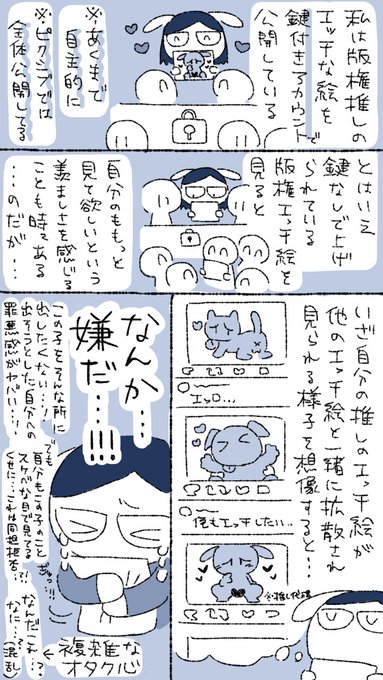 私は版権推しの
エッチな絵を
鍵付きアカウントで
公開している
※あくまで
自主的に
※ピクシブでは
全体公開してる
とはいえ
鍵なしで上げ
られている
版権エッチ絵を
見ると
自分のももっと
見て欲しいという
羨ましさを感じる
ことも時々ある
…のだが…
いざ自分の推しのエッチ絵が
他のエッチ絵と一緒に拡散され
見られる様子を想像すると…
エッロ…
俺もエッチしたい…
※推し代理
なんか…
嫌だ…!!!
この子をそんな所に
出したくない…!!
出そうとした自分への
罪悪感がヤバい…!!
でも
自分もこの子のこと
スケベな目で見てる
くせに…これは同担拒否…!?
あっ…!!
なんだこれ
なに…?
(混乱)
複雑な
オタク心